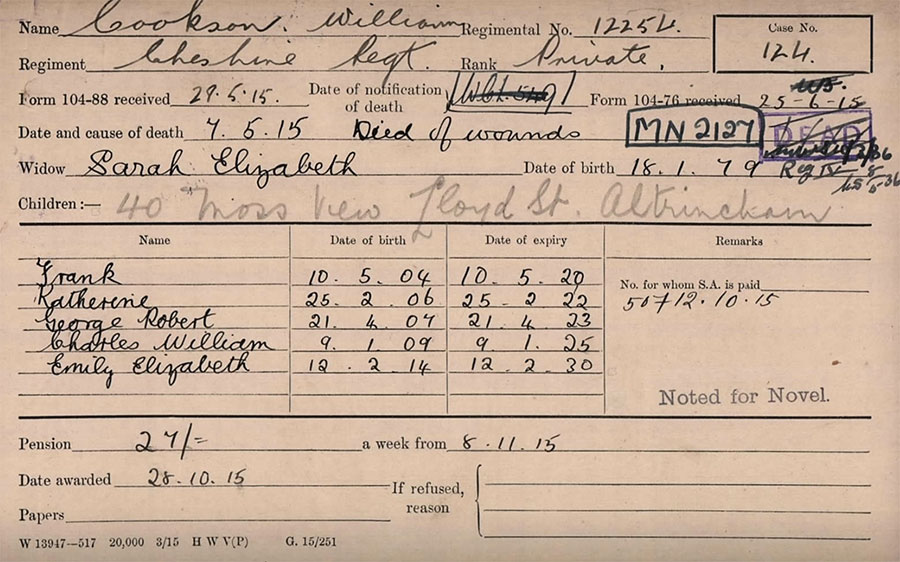 Name Cookson. William Regimental No. 12254. Case No.
Regiment Cheshire Regt. Rank Private. 124.
Form 104-88 received 29.5.15. Date of notification of death Form 104-76 received 25-6-15
Date and cause of death 7. 5. 15 Died of wounds MN 2127 DEAD
Widow Sarah Elizabeth Date of birth 18. 1. 79
Children:— 40 Moss View Lloyd St. Altrincham
Name Date of birth Date of expiry Remarks
Frank 10. 5. 04 10. 5. 20 No. for whom S.A. is paid
Katherine 25. 2. 06 25. 2. 22 12.10.15
George Robert 21. 4. 07 21. 4. 23
Charles William 9. 1. 09 9. 1. 25
Emily Elizabeth 12. 2. 14 12. 2. 30
Noted for Novel.
Pension 27/= a week from 8.11.15
Date awarded 28.10.15 If refused, reason
Papers
W 13947—517 20,000 3/15 H W V(P) G. 15/251